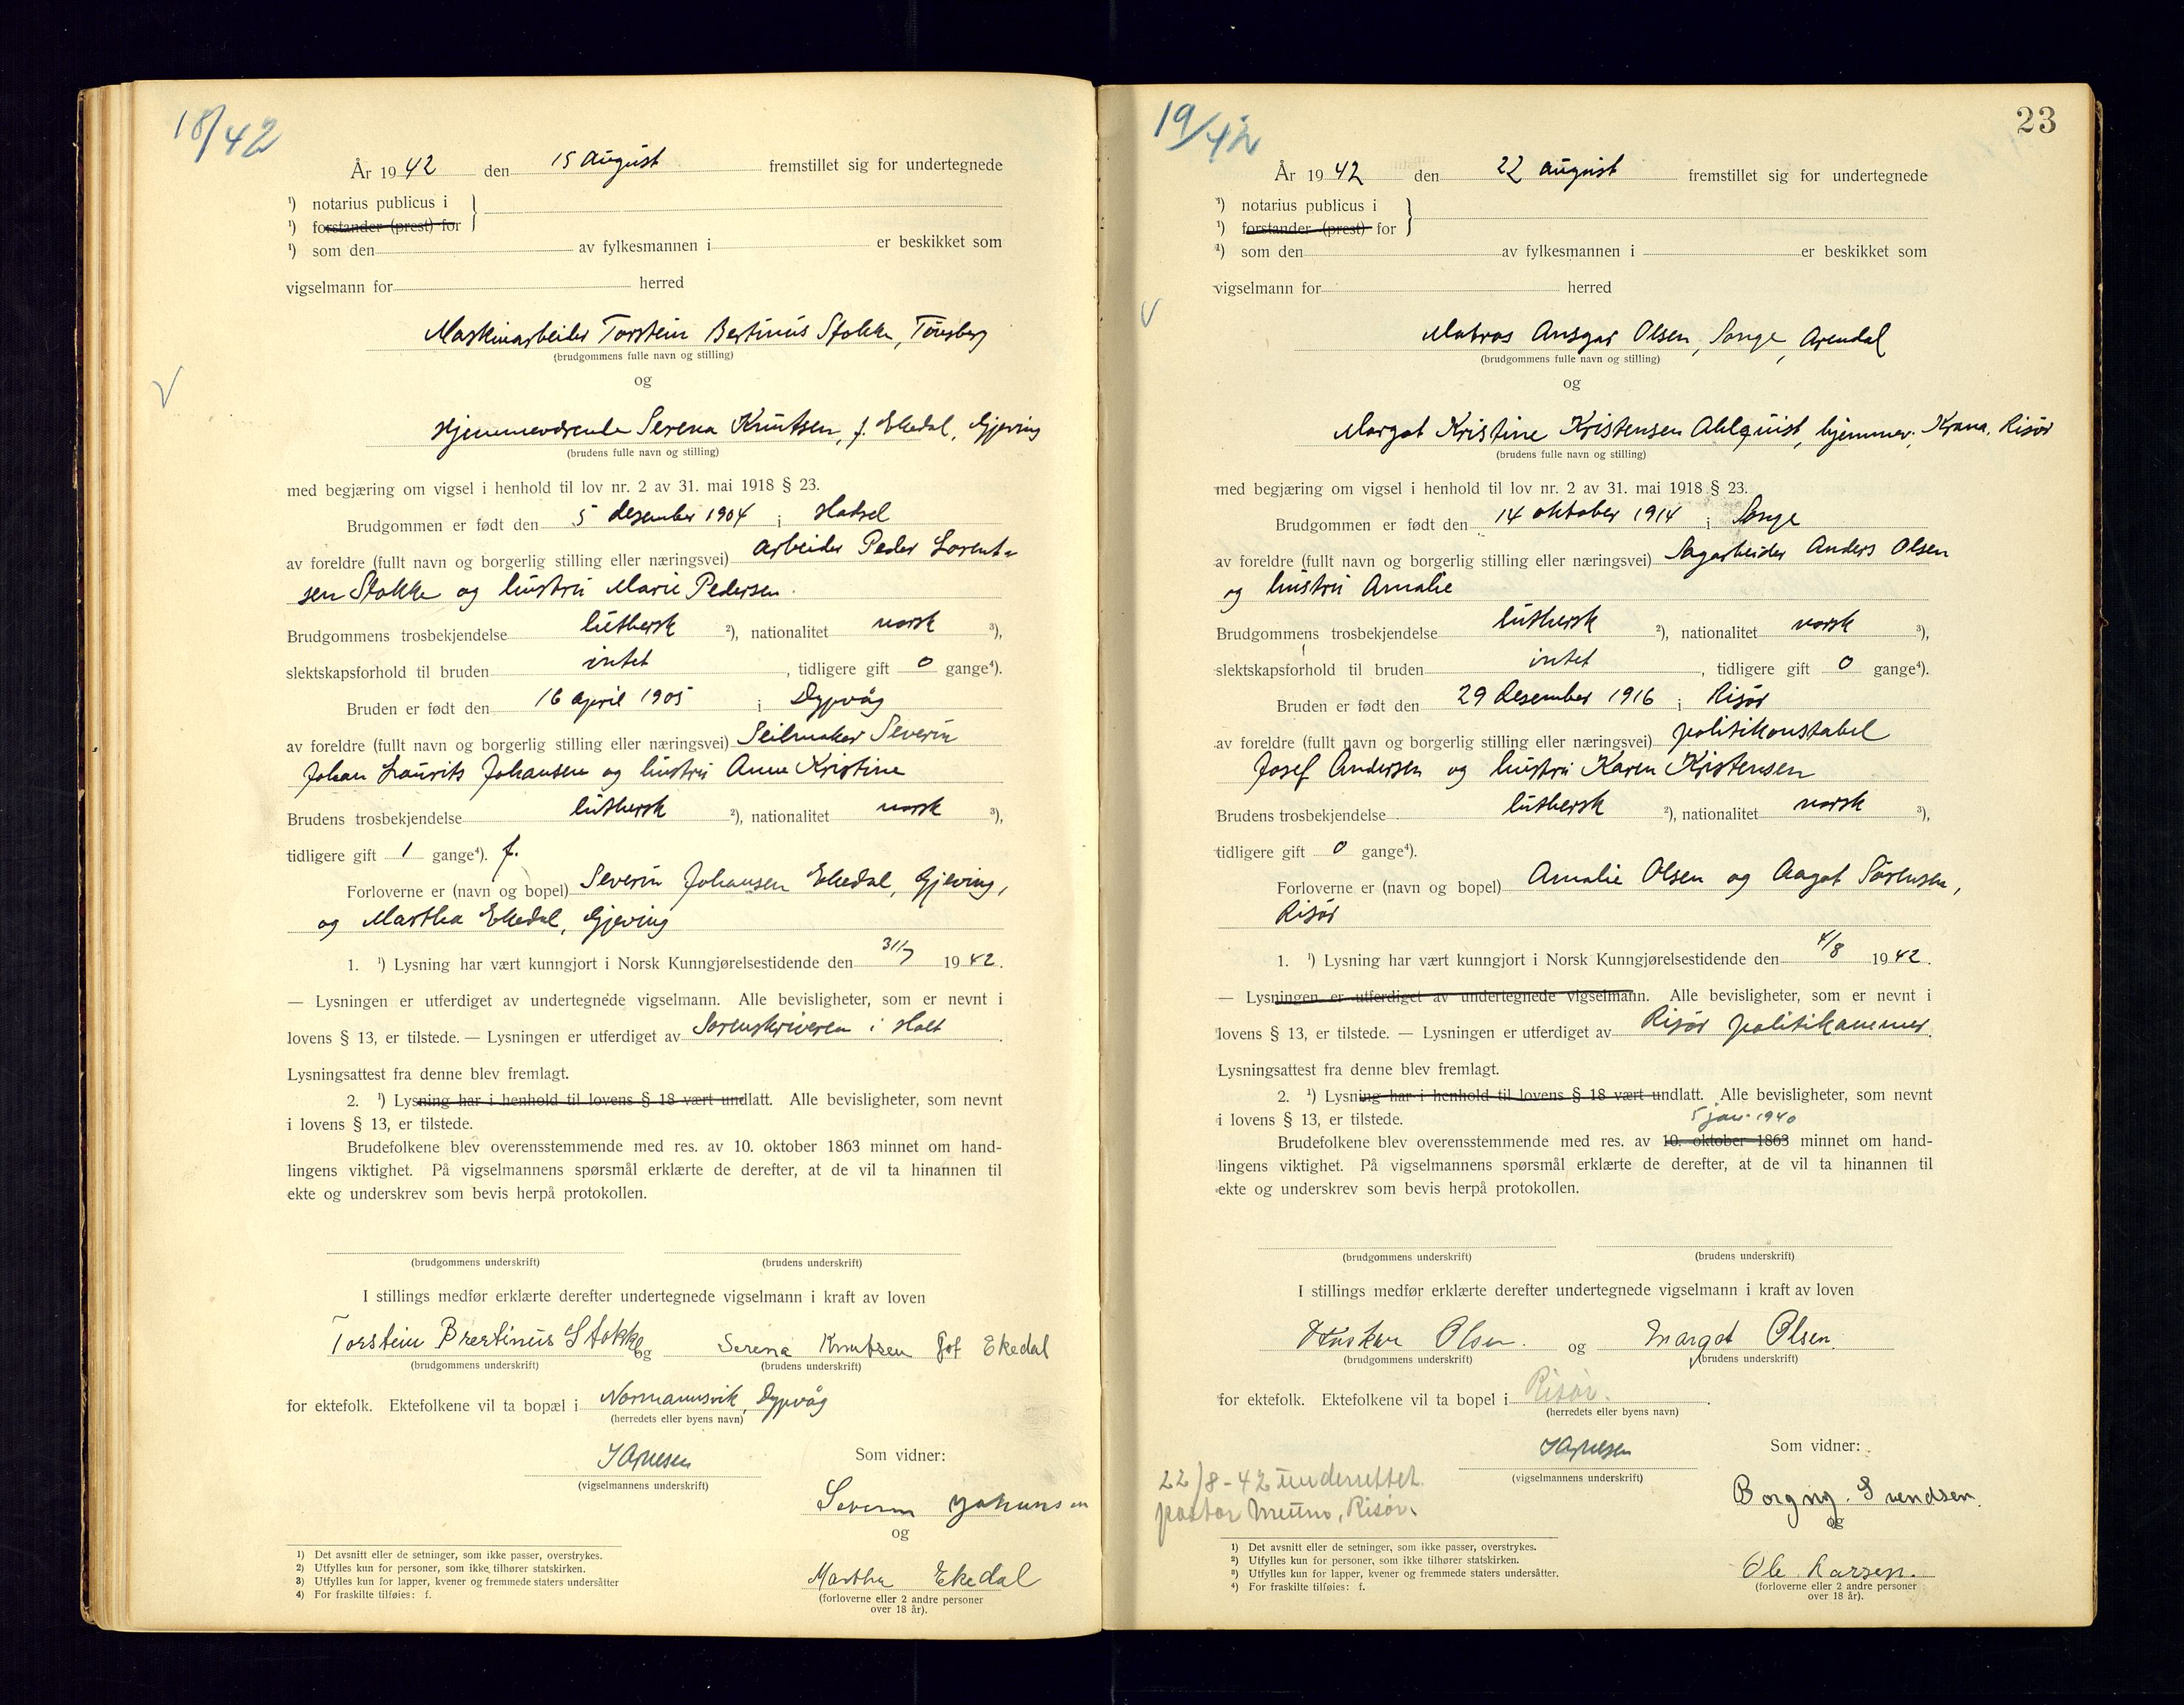 18/42
År 1942 den 15 august fremstillet sig for undertegnede
¹) notarius publicus i
¹) forstander (prest) for
¹) som den av fylkesmannen i er beskikket som
vigselmann for herred
Maskinarbeider Torstein Bertinus Stokke, Tönsberg
(brudgommens fulle navn og stilling)
og
Hjemmeværende Serena Knutsen, f. Ekedal, Gjeving
(brudens fulle navn og stilling)
med begjæring om vigsel i henhold til lov nr. 2 av 31. mai 1918 § 23.
Brudgommen er født den 5 desember 1904 i Hadsel
av foreldre (fullt navn og borgerlig stilling eller næringsvei) arbeider Peder Lorent=
sen Stokke og hustru Marie Pedersen.
Brudgommens trosbekjendelse luthersk ²), nationalitet norsk ³),
slektskapsforhold til bruden intet, tidligere gift 0 gange⁴).
Bruden er født den 16 april 1905 i Dypvåg
av foreldre (fullt navn og borgerlig stilling eller næringsvei) Seilmaker Severin
Johan Laurits Johansen og hustru Anne Kristine
Brudens trosbekjendelse luthersk ²), nationalitet norsk ³),
tidligere gift 1 gange⁴). f.
Forloverne er (navn og bopel) Severin Johansen Ekedal, Gjeving,
og Martha Ekedal, Gjeving
1. ¹) Lysning har vært kunngjort i Norsk Kunngjørelsestidende den 31/7 1942.
— Lysningen er utferdiget av undertegnede vigselmann. Alle bevisligheter, som er nevnt i
lovens § 13, er tilstede. — Lysningen er utferdiget av Sorenskriveren i Holt.
Lysningsattest fra denne blev fremlagt.
2. ¹) Lysning har i henhold til lovens § 18 vært undlatt. Alle bevisligheter, som nevnt
i lovens § 13, er tilstede.
Brudefolkene blev overensstemmende med res. av 10. oktober 1863 minnet om hand-
lingens viktighet. På vigselmannens spørsmål erklærte de derefter, at de vil ta hinannen til
ekte og underskrev som bevis herpå protokollen.
(brudgommens underskrift) (brudens underskrift)
I stillings medfør erklærte derefter undertegnede vigselmann i kraft av loven
Torstein Bertinus Stokke og Serena Knutsen föt Ekedal
(brudgommens underskrift) (brudens underskrift)
for ektefolk. Ektefolkene vil ta bopæl i Normannsvik, Dypvåg
(herredets eller byens navn)
Som vidner:
(vigselmannens underskrift)
Severin Johansen
og
Martha Ekedal
(forloverne eller 2 andre personer
over 18 år).
1) Det avsnitt eller de setninger, som ikke passer, overstrykes.
2) Utfylles kun for personer, som ikke tilhører statskirken.
3) Utfylles kun for lapper, kvener og fremmede staters undersåtter
4) For fraskilte tilføies: f.
19/42
23
År 1942 den 22 august fremstillet sig for undertegnede
¹) notarius publicus i
¹) forstander (prest) for
¹) som den av fylkesmannen i er beskikket som
vigselmann for herred
Matros Ansgar Olsen, Songe, Arendal
(brudgommens fulle navn og stilling)
og
Margot Kristine Kristensen Ahlquist, hjemmev. Krana, Risör
(brudens fulle navn og stilling)
med begjæring om vigsel i henhold til lov nr. 2 av 31. mai 1918 § 23.
Brudgommen er født den 14 oktober 1914 i Songe
av foreldre (fullt navn og borgerlig stilling eller næringsvei) Sagarbeider Anders Olsen
og hustru Amalie
Brudgommens trosbekjendelse luthersk ²), nationalitet norsk ³),
slektskapsforhold til bruden intet, tidligere gift 0 gange⁴).
Bruden er født den 29 desember 1916 i Risör
av foreldre (fullt navn og borgerlig stilling eller næringsvei) politikonstabel
Josef Andersen og hustru Karen Kristensen
Brudens trosbekjendelse luthersk ²), nationalitet norsk ³),
tidligere gift 0 gange⁴).
Forloverne er (navn og bopel) Amalie Olsen og Aagot Sörensen,
Risör
1. ¹) Lysning har vært kunngjort i Norsk Kunngjørelsestidende den 4/8 1942.
— Lysningen er utferdiget av undertegnede vigselmann. Alle bevisligheter, som er nevnt i
lovens § 13, er tilstede. — Lysningen er utferdiget av Risör politikammer.
Lysningsattest fra denne blev fremlagt.
2. ¹) Lysning har i henhold til lovens § 18 vært undlatt. Alle bevisligheter, som nevnt
i lovens § 13, er tilstede.
5 jan. 1940
Brudefolkene blev overensstemmende med res. av 10. oktober 1863 minnet om hand-
lingens viktighet. På vigselmannens spørsmål erklærte de derefter, at de vil ta hinannen til
ekte og underskrev som bevis herpå protokollen.
(brudgommens underskrift) (brudens underskrift)
I stillings medfør erklærte derefter undertegnede vigselmann i kraft av loven
Olsen. og Margot Olsen.
(brudgommens underskrift) (brudens underskrift)
for ektefolk. Ektefolkene vil ta bopel i Risör.
(herredets eller byens navn)
Som vidner:
(vigselmannens underskrift)
22/8-42 underrettet
pastor Risör.
Borgny. Svendsen.
og
Ole Larsen.
(forloverne eller 2 andre personer
over 18 år).
1) Det avsnitt eller de setninger, som ikke passer, overstrykes.
2) Utfylles kun for personer, som ikke tilhører statskirken.
3) Utfylles kun for lapper, kvener og fremmede staters undersåtter.
4) For fraskilte tilføies: f.